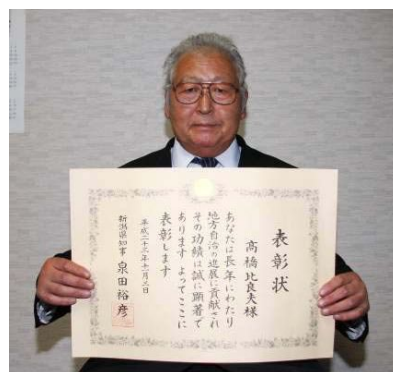 表彰状
高橋比良夫様
あなたは長年にわたり
地方自治の進展に貢献され
その功績は誠に顕著で
あります よってここに
表彰します
平成二十三年十一月三日
新潟県知事 泉田裕彦